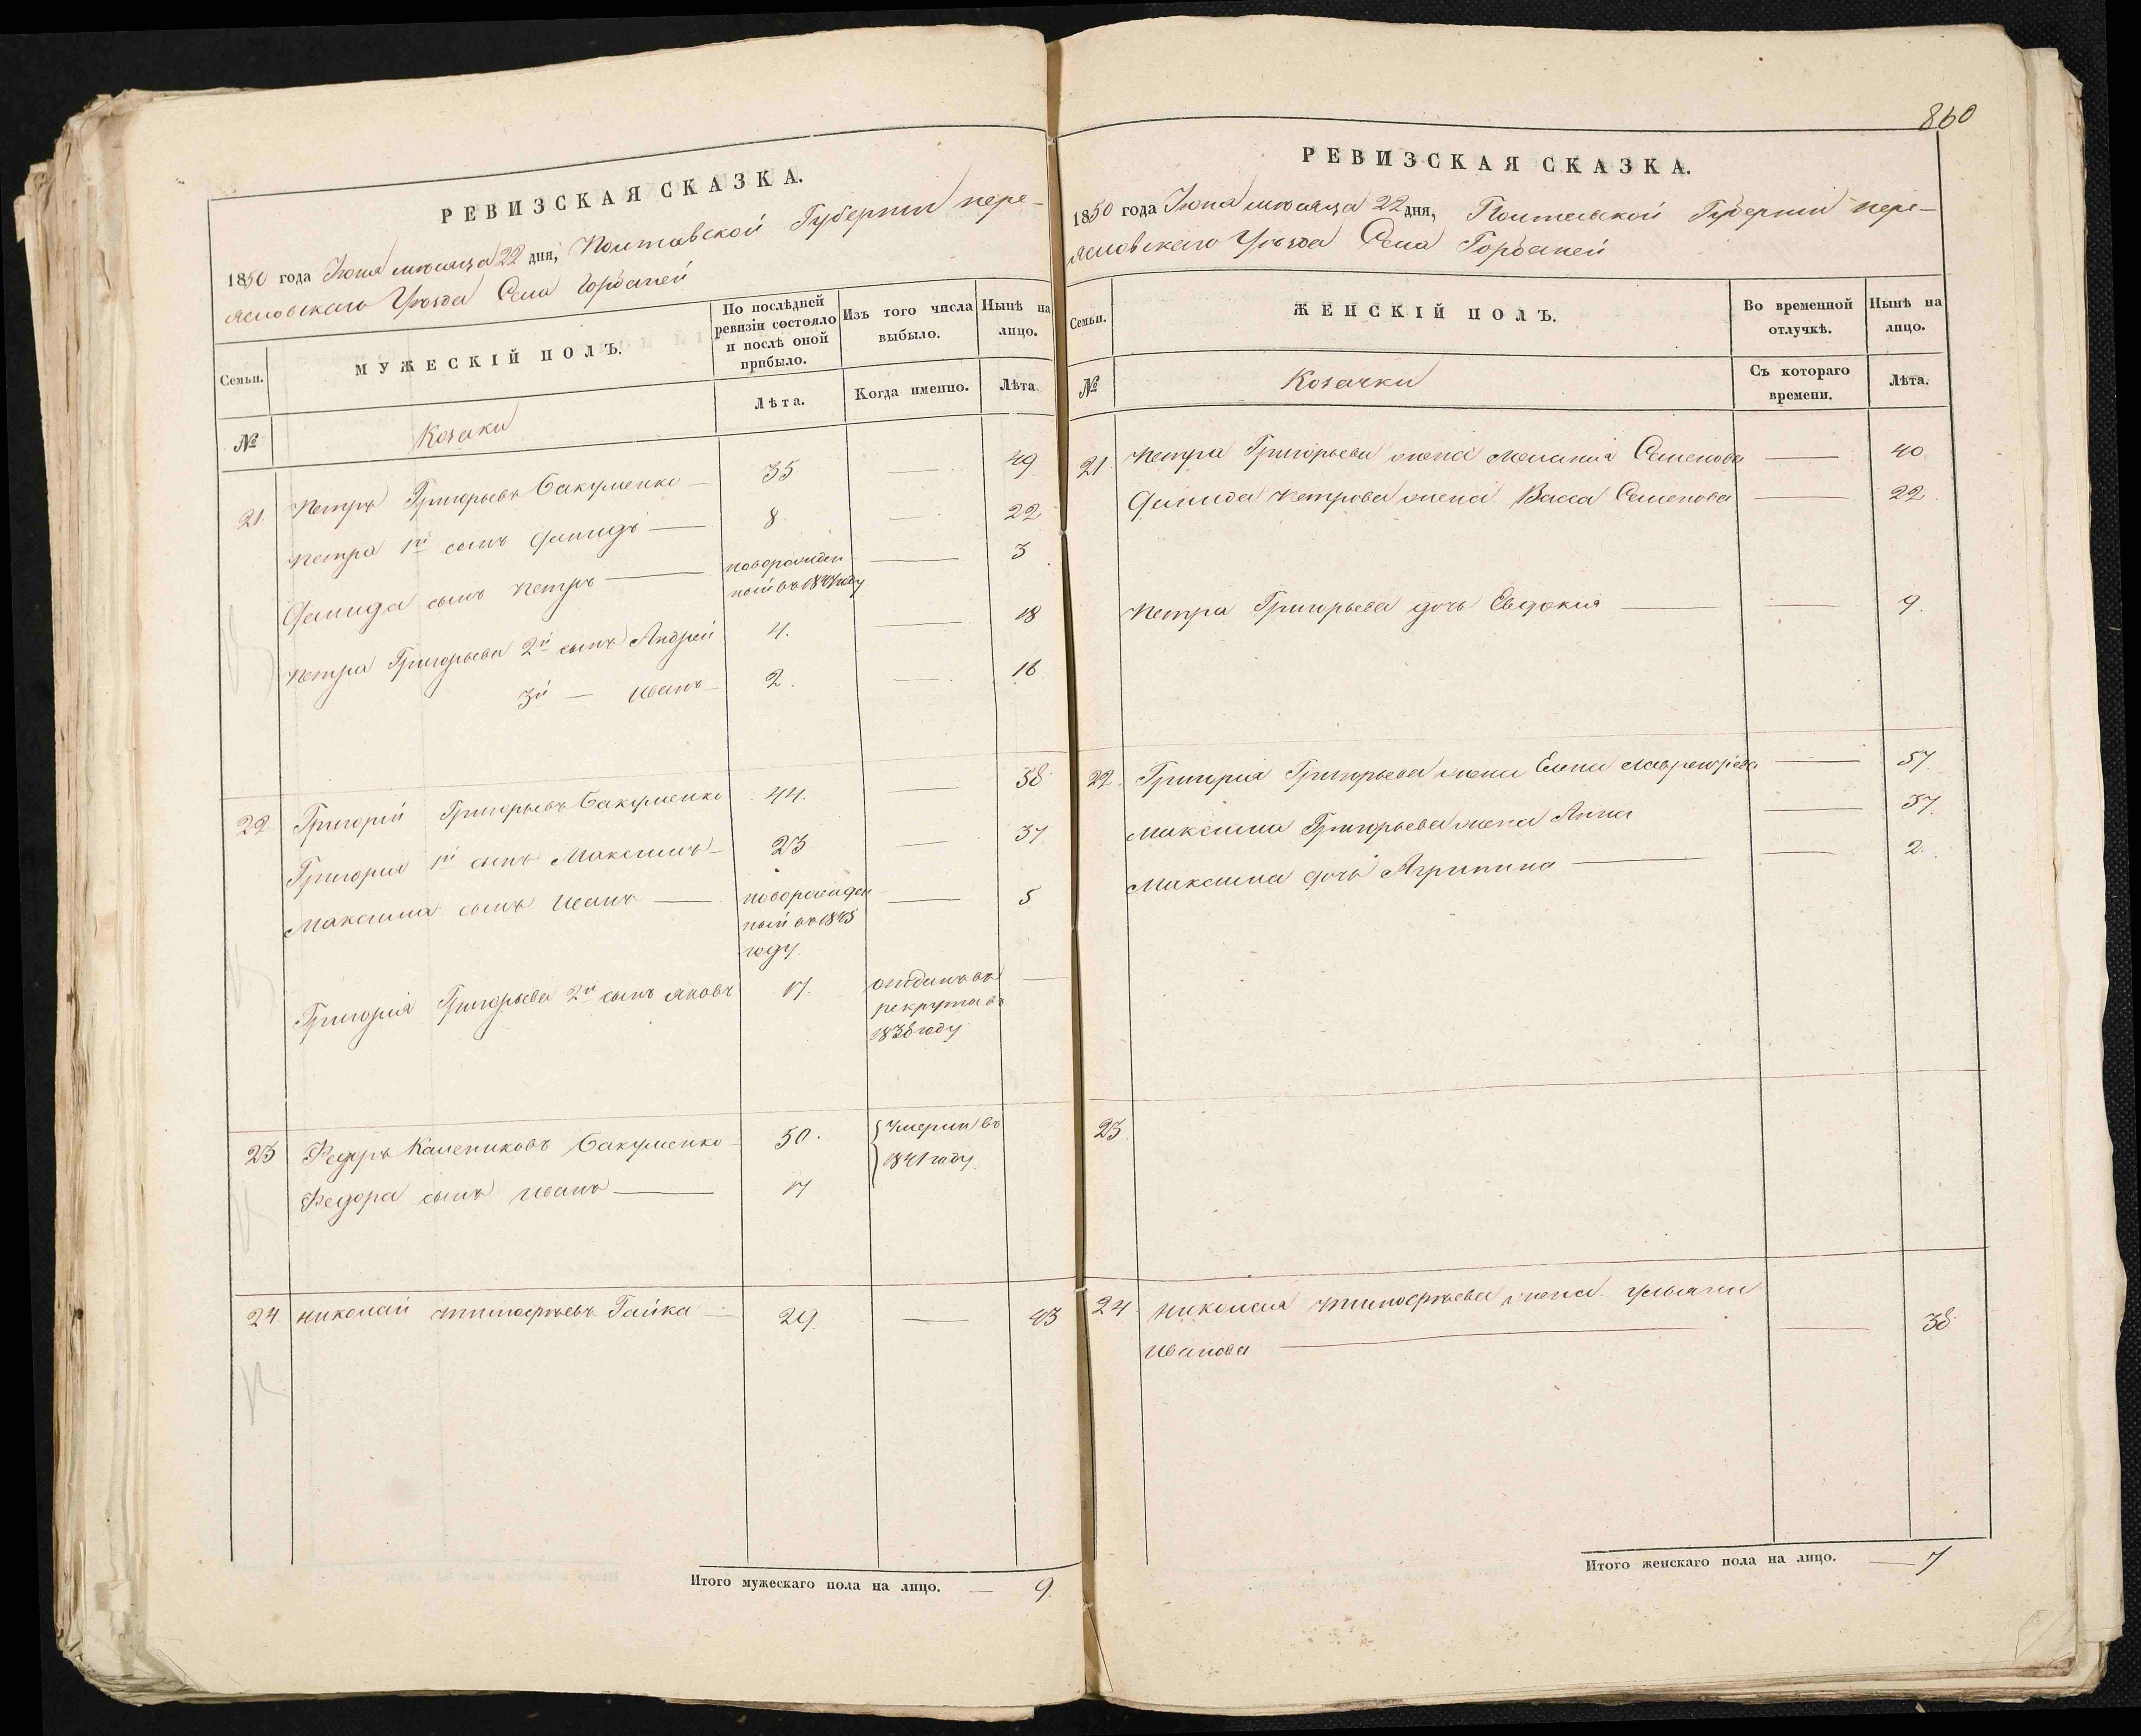 РЕВИЗСКАЯ СКАЗКА.
1850 года Іюня мѣсяца 22 дня, Полтавской Губерніи пере-
яславскаго Уѣзда Села Горбаней
Семьи.
МУЖЕСКІЙ ПОЛЪ.
По послѣдней
ревизіи состояло
и послѣ оной
прибыло.
Изъ того числа
выбыло.
Нынѣ на
лицо.
№
Козаки
Лѣта.
Когда именно.
Лѣта.
21. Петръ Григорьевъ Бакуменко — 35 — 49
Петра 1й сынъ Филидъ — 8. — 22
Филида сынъ Петръ — новорожден — 3
ный въ 1847 году
Петра Григорьева 2й сынъ Андрей 4. — 18
3й — Иванъ — 2. — 16
22. Григорій Григорьевъ Бакуменко 44. — 58.
Григорія 1й сынъ Максимъ — 23 — 37
Максима сынъ Иванъ — новорожден — 5
ный въ 1845
году.
Григорія Григорьева 2й сынъ Яковъ 17. отданъ въ —
рекрута въ
1836 году
23 Федоръ Калениковъ Бакуменко — 50. Умерли въ
1841 году.
Федора сынъ Иванъ — 17
24 Николай Тимофѣевъ Гайка — 29. — 43
Итого мужескаго пола на лицо. — 9.
860
РЕВИЗСКАЯ СКАЗКА.
1850 года Іюня мѣсяца 22 дня, Полтавской Губерніи пере-
яславскаго Уѣзда Села Горбаней
Семьи.
ЖЕНСКІЙ ПОЛЪ.
Во временной
отлучкѣ.
Нынѣ на
лицо.
№
Козачки
Съ котораго
времени.
Лѣта.
21. Петра Григорьева жена Меланія Семенова — 40
Филида Петрова жена Васса Семенова — 22.
Петра Григорьева дочь Евдокія — — 9.
22. Григорія Григорьева жена Елена — 57.
Максима Григорьева жена Анна — 37.
Максима дочь Агрипина — — 2.
23.
24. Николая Тимофѣева жена Ульяна
Иванова — — 38.
Итого женскаго пола на лицо. — 7